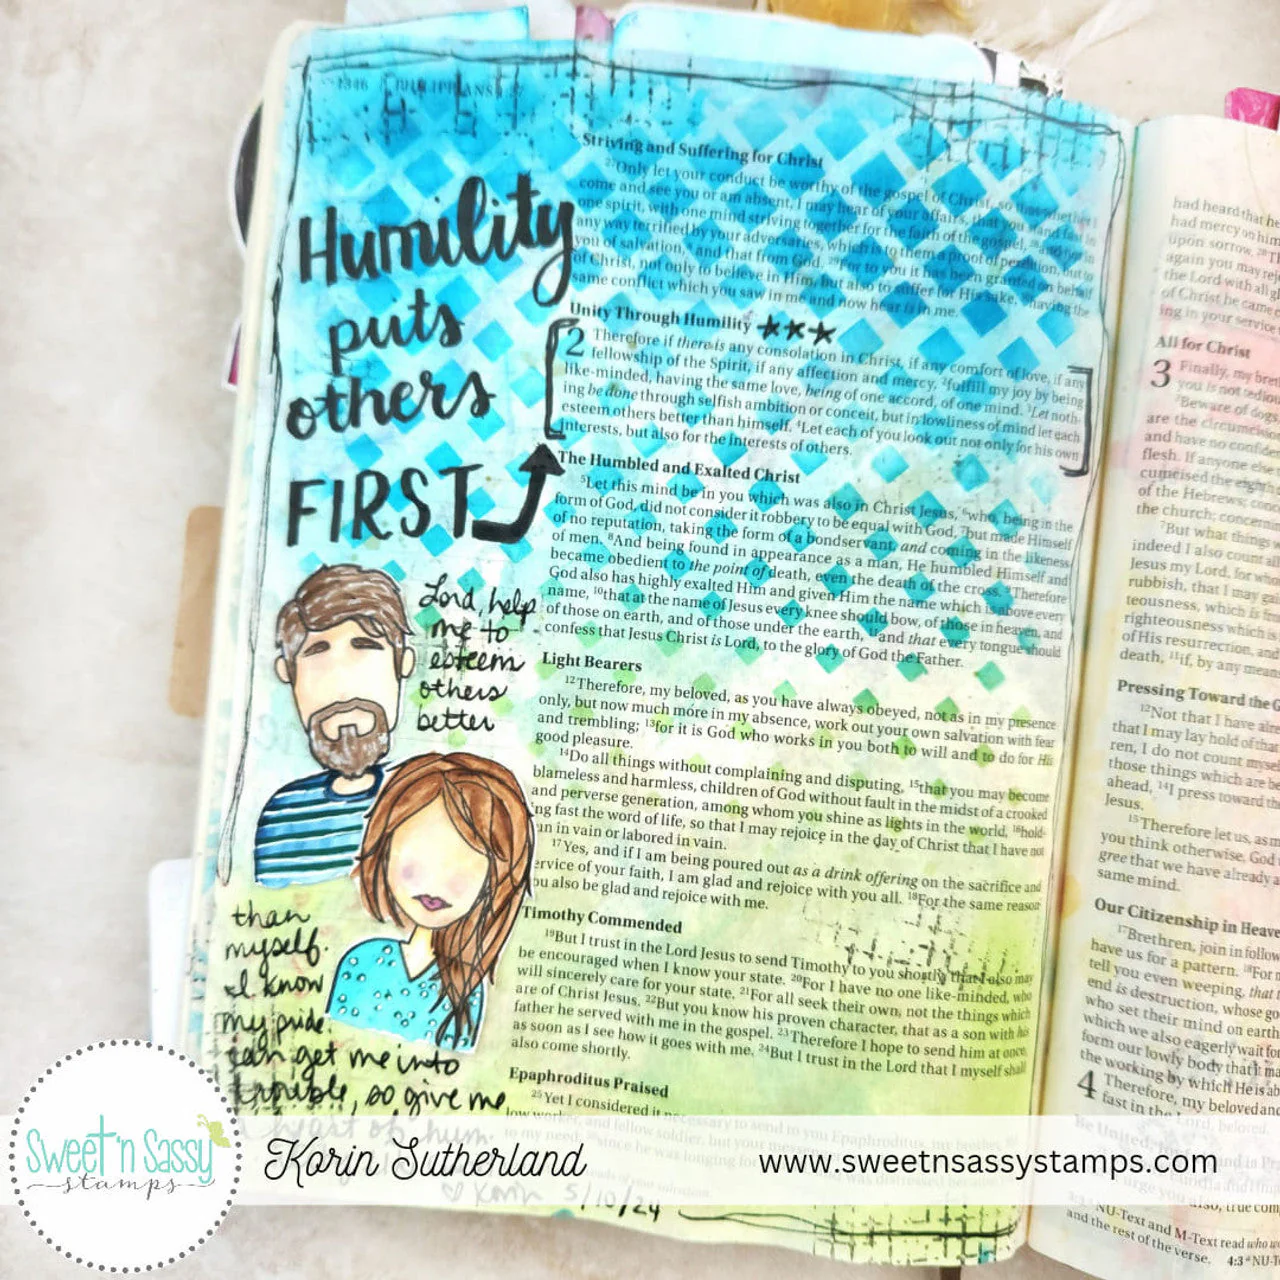 1346 / PHILIPPIANS
Humility
puts
others
FIRST
Lord, help
me to
esteem
others
better
than
myself.
I know
my pride
can get me into
trouble, so give me
a heart of hum
♡ Korin 5/10/24
Striving and Suffering for Christ
27Only let your conduct be worthy of the gospel of Christ, so that whether I
come and see you or am absent, I may hear of your affairs, that you stand fast in
one spirit, with one mind striving together for the faith of the gospel, 28and not in
any way terrified by your adversaries, which is to them a proof of perdition, but to
you of salvation, and that from God. 29For to you it has been granted on behalf
of Christ, not only to believe in Him, but also to suffer for His sake, 30having the
same conflict which you saw in me and now hear is in me.
Unity Through Humility ★★★
2 Therefore if there is any consolation in Christ, if any comfort of love, if any
fellowship of the Spirit, if any affection and mercy, 2fulfill my joy by being
like-minded, having the same love, being of one accord, of one mind. 3Let noth-
ing be done through selfish ambition or conceit, but in lowliness of mind let each
esteem others better than himself. 4Let each of you look out not only for his own
interests, but also for the interests of others.
The Humbled and Exalted Christ
5Let this mind be in you which was also in Christ Jesus, 6who, being in the
form of God, did not consider it robbery to be equal with God, 7but made Himself
of no reputation, taking the form of a bondservant, and coming in the likeness
of men. 8And being found in appearance as a man, He humbled Himself and
became obedient to the point of death, even the death of the cross. 9Therefore
God also has highly exalted Him and given Him the name which is above every
name, 10that at the name of Jesus every knee should bow, of those in heaven, and
of those on earth, and of those under the earth, 11and that every tongue should
confess that Jesus Christ is Lord, to the glory of God the Father.
Light Bearers
12Therefore, my beloved, as you have always obeyed, not as in my presence
only, but now much more in my absence, work out your own salvation with fear
and trembling; 13for it is God who works in you both to will and to do for His
good pleasure.
14Do all things without complaining and disputing, 15that you may become
blameless and harmless, children of God without fault in the midst of a crooked
and perverse generation, among whom you shine as lights in the world, 16hold-
ng fast the word of life, so that I may rejoice in the day of Christ that I have not
un in vain or labored in vain.
17Yes, and if I am being poured out as a drink offering on the sacrifice and
ervice of your faith, I am glad and rejoice with you all. 18For the same reason
ou also be glad and rejoice with me.
Timothy Commended
19But I trust in the Lord Jesus to send Timothy to you shortly, that I also may
be encouraged when I know your state. 20For I have no one like-minded, who
will sincerely care for your state. 21For all seek their own, not the things which
are of Christ Jesus. 22But you know his proven character, that as a son with his
father he served with me in the gospel. 23Therefore I hope to send him at once,
as soon as I see how it goes with me. 24But I trust in the Lord that I myself shall
also come shortly.
Epaphroditus Praised
25Yet I considered it necessary to send to you Epaphroditus, my brother,
low worker, and fellow soldier, but your
to my need; 26since he was longing for
had heard that he
had mercy on him
upon sorrow. 28Th
again you may re
the Lord with all g
of Christ he came
ing in your service
All for Christ
3 Finally, my bre
you is not tedio
2Beware of dogs
are the circumcision
and have no confiden
flesh. If anyone else
cumcised the eighth
of the Hebrews; conc
the church; concernin
7But what things w
indeed I also count all
Jesus my Lord, for who
rubbish, that I may gai
teousness, which is f
righteousness which is
of His resurrection, and
death, 11if, by any mean
Pressing Toward the G
12Not that I have alrea
that I may lay hold of that
ren, I do not count mysel
those things which are be
ahead, 14I press toward th
Jesus.
15Therefore let us, as m
you think otherwise, God
gree that we have already a
same mind.
Our Citizenship in Heave
17Brethren, join in follow
have us for a pattern. 18For m
tell you even weeping, that t
end is destruction, whose go
who set their mind on earth
which we also eagerly wait for
form our lowly body that it ma
the working by which He is ab
4 Therefore, my beloved and
fast in the Lord, beloved.
Be United,
urge you also, true comp
NU-Text and M-Text read who wo
and the rest of the verse. 4:3 NU-T
Sweet 'n Sassy
stamps
Korin Sutherland
www.sweetnsassystamps.com